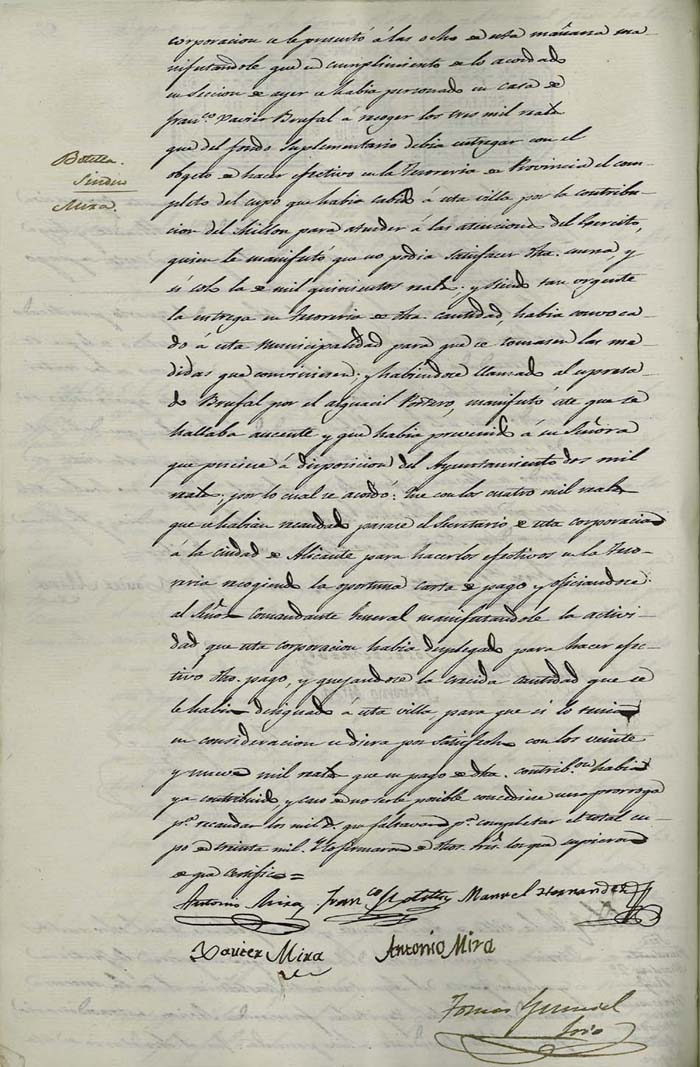 Botella.
Sindico
Mira.
corporacion se le presentó á las ocho de esta mañana ma-
nifestandole que en cumplimiento de lo acordado
en seccion de ayer se habia personado en casa de
Fran.co Xavier Brufal á recoger los tres mil reales
que del fondo suplementario debia entregar con el
obgeto de hacer efectivo en la Tesoreria de Provincia el com-
pleto del cupo que habia cabido á esta villa por la contribu-
cion del millon para atender á las atenciones del Exercito,
quien le manifestó que no podia satisfacer dha. suma, y
si solo la de mil quinientos reales: y siendo tan urgente
la entrega en Tesoreria de dha. cantidad, habia convoca-
do á esta Municipalidad para que se tomasen las me-
didas que conviniesen; y habiendose llamado al espresa-
do Brufal por el alguacil Portero, manifestó este que se
hallaba aucente y que habia prevenido á su Señora
que pusiese á disposicion del Ayuntamiento dos mil
reales; por lo cual se acordó: Que con los cuatro mil reales
que se habian recaudado pasase el Secretario de esta corporacion
á la ciudad de Alicante para hacerlos efectivos en la Teso-
reria recogiendo la oportuna carta de pago y oficiandose
al Señor Comandante General manifestandole la activi-
dad que esta corporacion habia desplegado para hacer efec-
tivo dho. pago, y quejandose la crecida cantidad que se
le habia designado á esta villa para que si lo tenia
en consideracion se diera por satisfecho con los veinte
y nueve mil reales que en pago de dha. contribon. habia
ya contribuido, y caso de no serle posible concediese una prorroga
p.a recaudar los mil r. que faltavan p.a completar el total cu-
po de treinta mil. Y lo firmaron de dhos. Sres. los que supieron
de que certifico =
Antonio Mira Fran.co Botella Manuel Hernandez
Xavier Mira Antonio Mira
Tomas
Srio